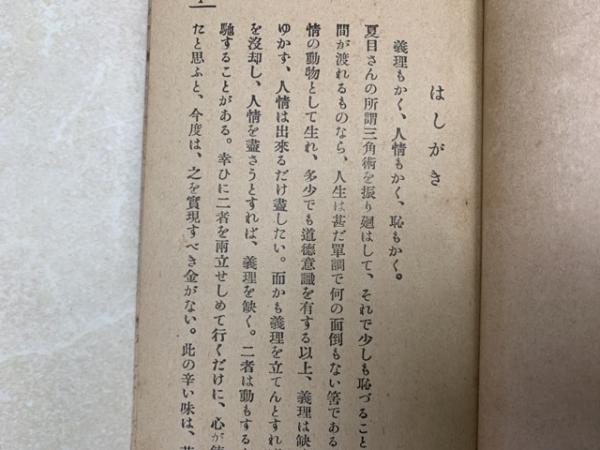 はしがき
義理もかく、人情もかく、恥もかく。
夏目さんの所謂三角術を振り廻はして、それで少しも恥づること
間が渡れるものなら、人生は甚だ單調で何の面倒もない筈である
情の動物として生れ、多少でも道德意識を有する以上、義理は缺
ゆかず、人情は出來るだけ盡したい。而かも義理を立てんとすれ
を沒却し、人情を盡さうとすれば、義理を缺く。二者は動もする
馳することがある。幸ひに二者を兩立せしめて行くだけに、心が
たと思ふと、今度は、之を實現すべき金がない。此の辛い味は、